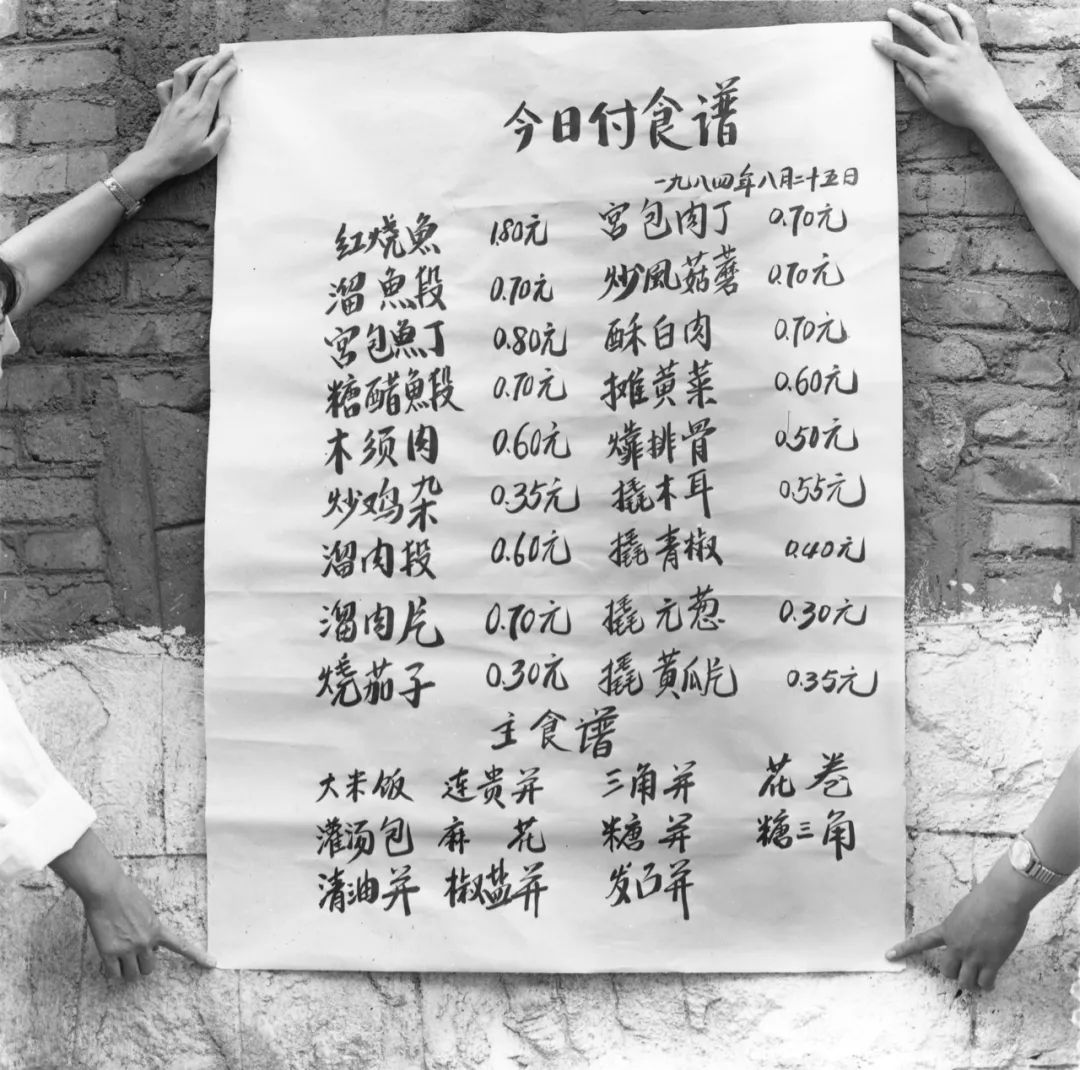 今日付食谱
一九八四年八月二十五日
红烧魚 1.80元 宫包肉丁 0.70元
溜魚段 0.70元 炒風菇蘑 0.70元
宫包魚丁 0.80元 酥白肉 0.70元
糖醋魚段 0.70元 摊黄菜 0.60元
木须肉 0.60元 排骨 0.50元
炒鸡杂 0.35元 撬木耳 0.55元
溜肉段 0.60元 撬青椒 0.40元
溜肉片 0.70元 撬元葱 0.30元
烧茄子 0.30元 撬黄瓜片 0.35元
主食谱
大米饭 连贵并 三角并 花卷
灌汤包 麻花 糖并 糖三角
清油并 椒盐并 发面并